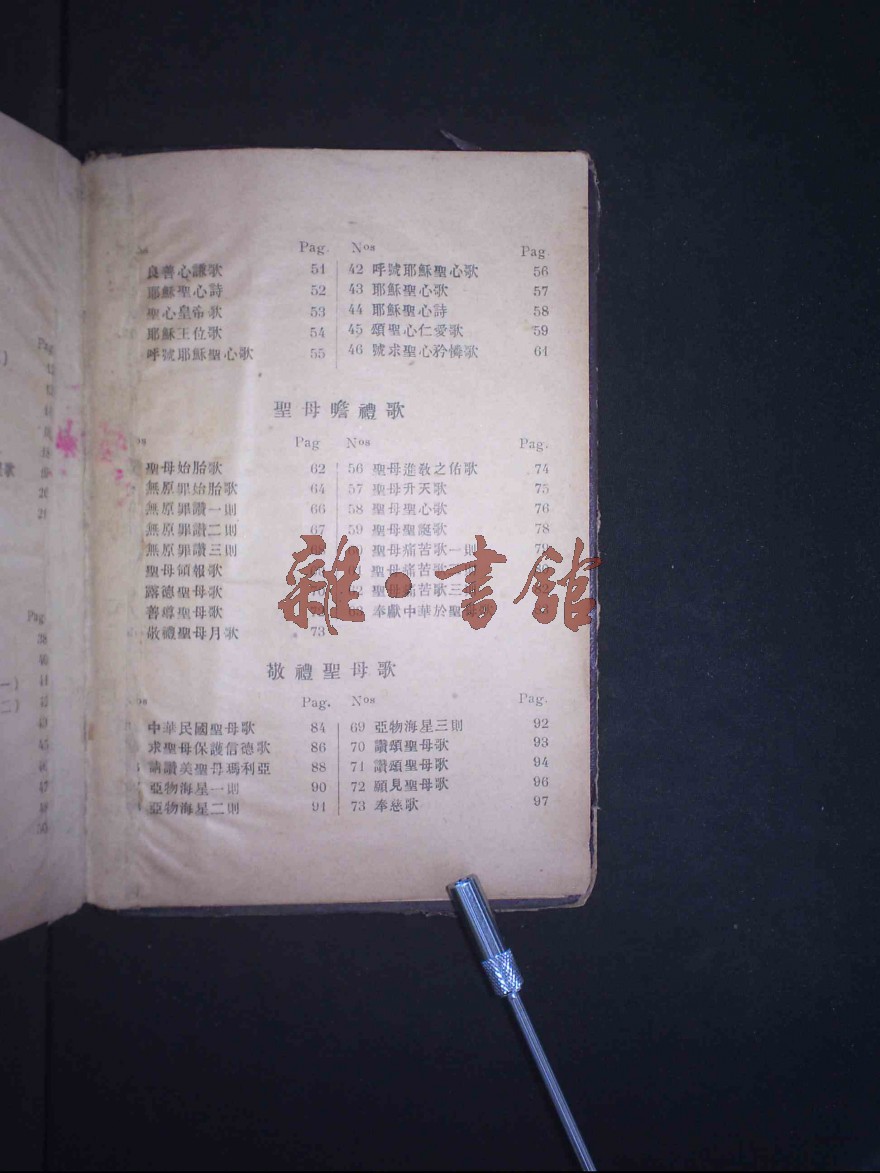 Pag. Nos Pag.
良善心謙歌 51 42 呼號耶穌聖心歌 56
耶穌聖心詩 52 43 耶穌聖心歌 57
聖心皇帝歌 53 44 耶穌聖心詩 58
耶穌王位歌 54 45 頌聖心仁愛歌 59
呼號耶穌聖心歌 55 46 號求聖心矜憐歌 61
聖母瞻禮歌
Pag Nos Pag.
聖母始胎歌 62 56 聖母進教之佑歌 74
無原罪始胎歌 64 57 聖母升天歌 75
無原罪讚一則 66 58 聖母聖心歌 76
無原罪讚二則 67 59 聖母聖誕歌 78
無原罪讚三則 聖母痛苦歌一則 79
聖母領報歌 聖母痛苦歌
露德聖母歌 聖母痛苦歌三
善導聖母歌 奉獻中華於聖母
敬禮聖母月歌 73
雜·書館
敬禮聖母歌
Pag. Nos Pag.
中華民國聖母歌 84 69 亞物海星三則 92
求聖母保護信德歌 86 70 讚頌聖母歌 93
請讚美聖母瑪利亞 88 71 讚頌聖母歌 94
亞物海星一則 90 72 願見聖母歌 96
亞物海星二則 91 73 奉慈歌 97
Pag
20
21
Pag
38
40
50